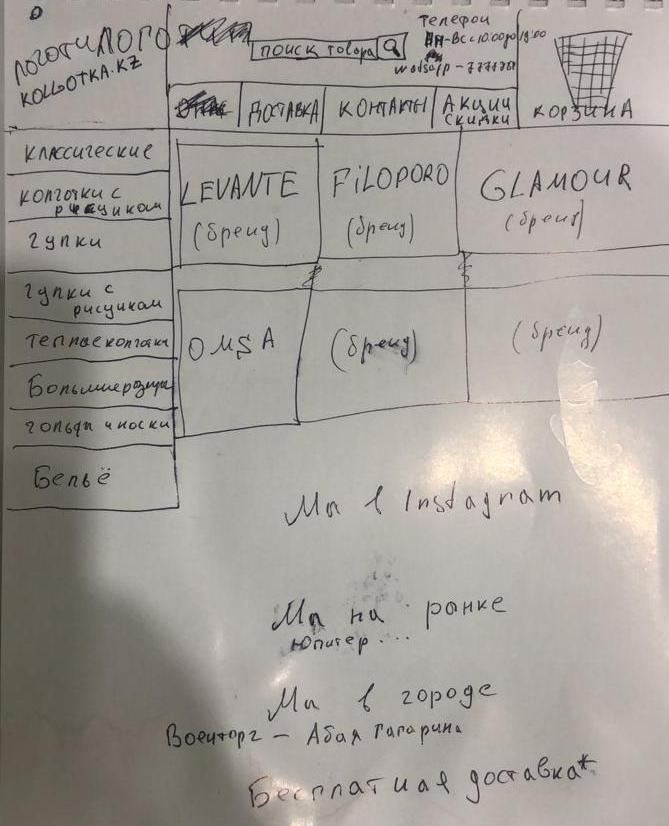 ЛОГОТИП ЛОГО
KOLGOTKA.KZ
ПОИСК ТОВАРА
Телефон
ПН-ВС с 10:00 до 19:00
watsapp - 7777781
КОРЗИНА
ДОСТАВКА
КОНТАКТЫ
АКЦИИ
СКИДКИ
КЛАССИЧЕСКИЕ
КОЛГОТКИ С
РИСУНКОМ
ЧУЛКИ
ЧУЛКИ С
РИСУНКОМ
Теплые колготки
Большие размеры
гольфы и носки
Бельё
LEVANTE
(бренд)
FILOPORO
(бренд)
GLAMOUR
(бренд)
OMSA
(бренд)
(бренд)
Мы в Instagram
Мы на рынке
Юпитер ...
Мы в городе
Военторг - Абая Гагарина
Бесплатная доставка*